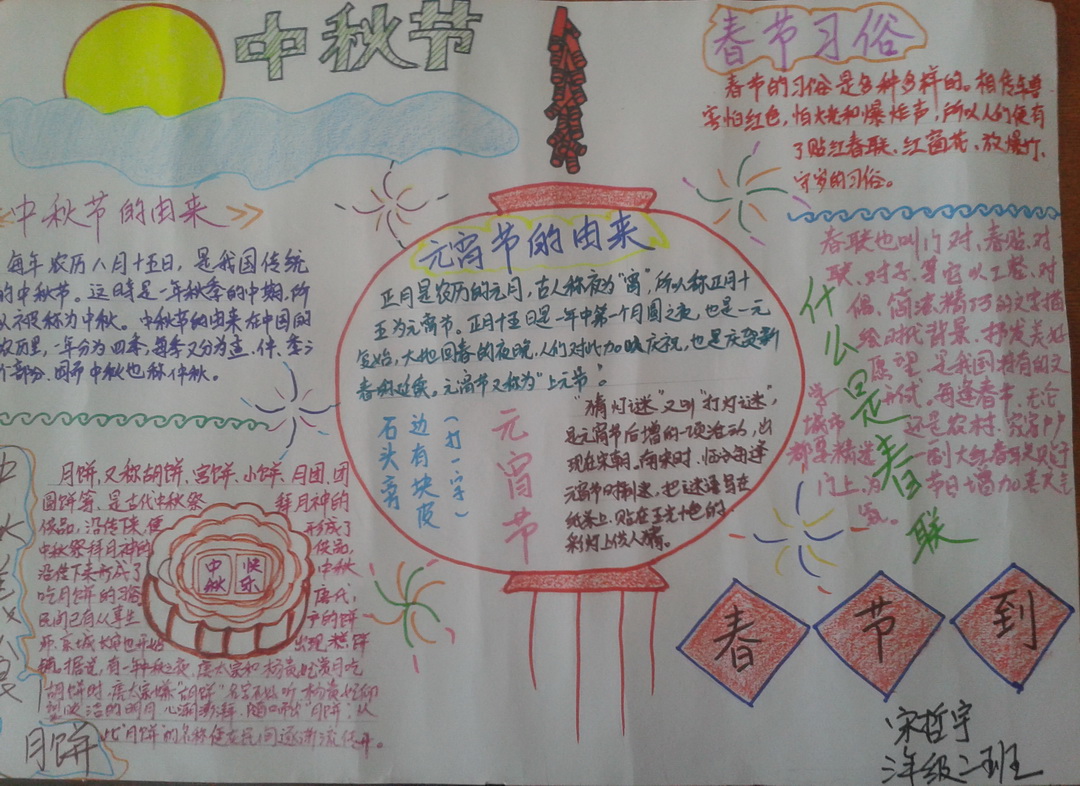 中秋节
中秋节的由来
每年农历八月十五日，是我国传统
的中秋节。这时是一年秋季的中期，所
以被称为中秋。中秋节的由来在中国的
农历里，一年分为四季，每季又分为孟、仲、季三
个部分，因而中秋也称仲秋。
月饼，又称胡饼，宫饼，小饼，月团，团
圆饼等，是古代中秋祭 拜月神的
供品，沿传下来，便 形成了
中秋祭拜月神的 供品，
沿传下来形成了 中秋
吃月饼的习俗 唐代，
民间已有从事生 产的饼
师，京城长安也开始 出现糕饼
铺，据说，有一年中秋之夜，唐太宗和杨贵妃赏月吃
胡饼时，唐太宗嫌"胡饼"名字不好听，杨贵妃仰
望皎洁的明月，心潮澎湃，随口而出"月饼"，从
此"月饼"的名称便在民间逐渐流传开。
中秋
快乐
月饼
元宵节的由来
正月是农历的元月，古人称夜为"宵"，所以称正月十
五为元宵节。正月十五日是一年中第一个月圆之夜，也是一元
复始，大地回春的夜晚，人们对此加以庆祝，也是庆贺新
春的延续。元宵节又称为"上元节"。
石头旁
边有块皮
（打一字）
元宵节
"猜灯谜"又叫"打灯谜"，
是元宵节后增的一项活动，出
现在宋朝，南宋时，临安每逢
元宵节时制迷，把谜语写在
纸条上，贴在五光十色的
彩灯上供人猜。
春节习俗
春节的习俗是多种多样的。相传年兽
害怕红色，怕火光和爆炸声，所以人们便有
了贴红春联、红窗花、放爆竹、
守岁的习俗。
什么是春联
春联也叫门对、春贴、对
联、对子，等它以工整、对
偶、简洁、精巧的文字描
绘时代背景，抒发美好
愿望，是我国特有的文
学形式，每逢春节，无论
城市还是农村，家家户户
都要精选一副大红春联贴于
门上，为节日增加喜庆气
氛。
春节到
宋哲宇
三年级二班